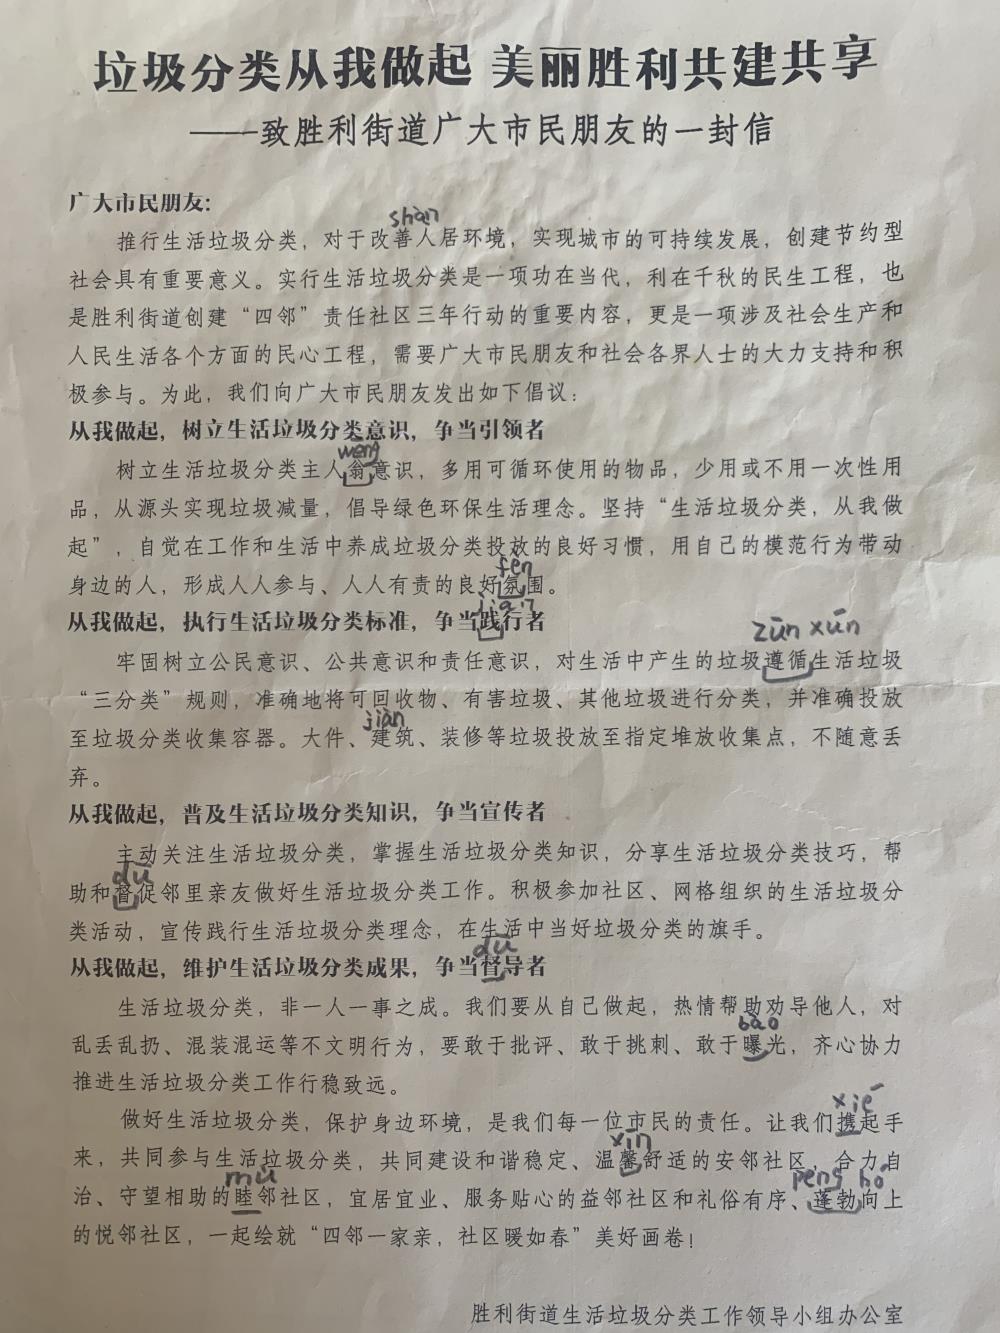 垃圾分类从我做起 美丽胜利共建共享
——致胜利街道广大市民朋友的一封信
广大市民朋友：
shàn
推行生活垃圾分类，对于改善人居环境，实现城市的可持续发展，创建节约型
社会具有重要意义。实行生活垃圾分类是一项功在当代，利在千秋的民生工程，也
是胜利街道创建“四邻”责任社区三年行动的重要内容，更是一项涉及社会生产和
人民生活各个方面的民心工程，需要广大市民朋友和社会各界人士的大力支持和积
极参与。为此，我们向广大市民朋友发出如下倡议：
从我做起，树立生活垃圾分类意识，争当引领者
wēng
树立生活垃圾分类主人翁意识，多用可循环使用的物品，少用或不用一次性用
品，从源头实现垃圾减量，倡导绿色环保生活理念。坚持“生活垃圾分类，从我做
起”，自觉在工作和生活中养成垃圾分类投放的良好习惯，用自己的模范行为带动
fēn
身边的人，形成人人参与、人人有责的良好氛围。
jiàn
从我做起，执行生活垃圾分类标准，争当践行者
zūn xún
牢固树立公民意识、公共意识和责任意识，对生活中产生的垃圾遵循生活垃圾
“三分类”规则，准确地将可回收物、有害垃圾、其他垃圾进行分类，并准确投放
jiàn
至垃圾分类收集容器。大件、建筑、装修等垃圾投放至指定堆放收集点，不随意丢
弃。
从我做起，普及生活垃圾分类知识，争当宣传者
主动关注生活垃圾分类，掌握生活垃圾分类知识，分享生活垃圾分类技巧，帮
dū
助和督促邻里亲友做好生活垃圾分类工作。积极参加社区、网格组织的生活垃圾分
类活动，宣传践行生活垃圾分类理念，在生活中当好垃圾分类的旗手。
dū
从我做起，维护生活垃圾分类成果，争当督导者
生活垃圾分类，非一人一事之成。我们要从自己做起，热情帮助劝导他人，对
bào
乱丢乱扔、混装混运等不文明行为，要敢于批评、敢于挑刺、敢于曝光，齐心协力
推进生活垃圾分类工作行稳致远。
xié
做好生活垃圾分类，保护身边环境，是我们每一位市民的责任。让我们携起手
xīn
来，共同参与生活垃圾分类，共同建设和谐稳定、温馨舒适的安邻社区，合力自
mù péng bó
治、守望相助的睦邻社区，宜居宜业、服务贴心的益邻社区和礼俗有序、蓬勃向上
的悦邻社区，一起绘就“四邻一家亲，社区暖如春”美好画卷！
胜利街道生活垃圾分类工作领导小组办公室